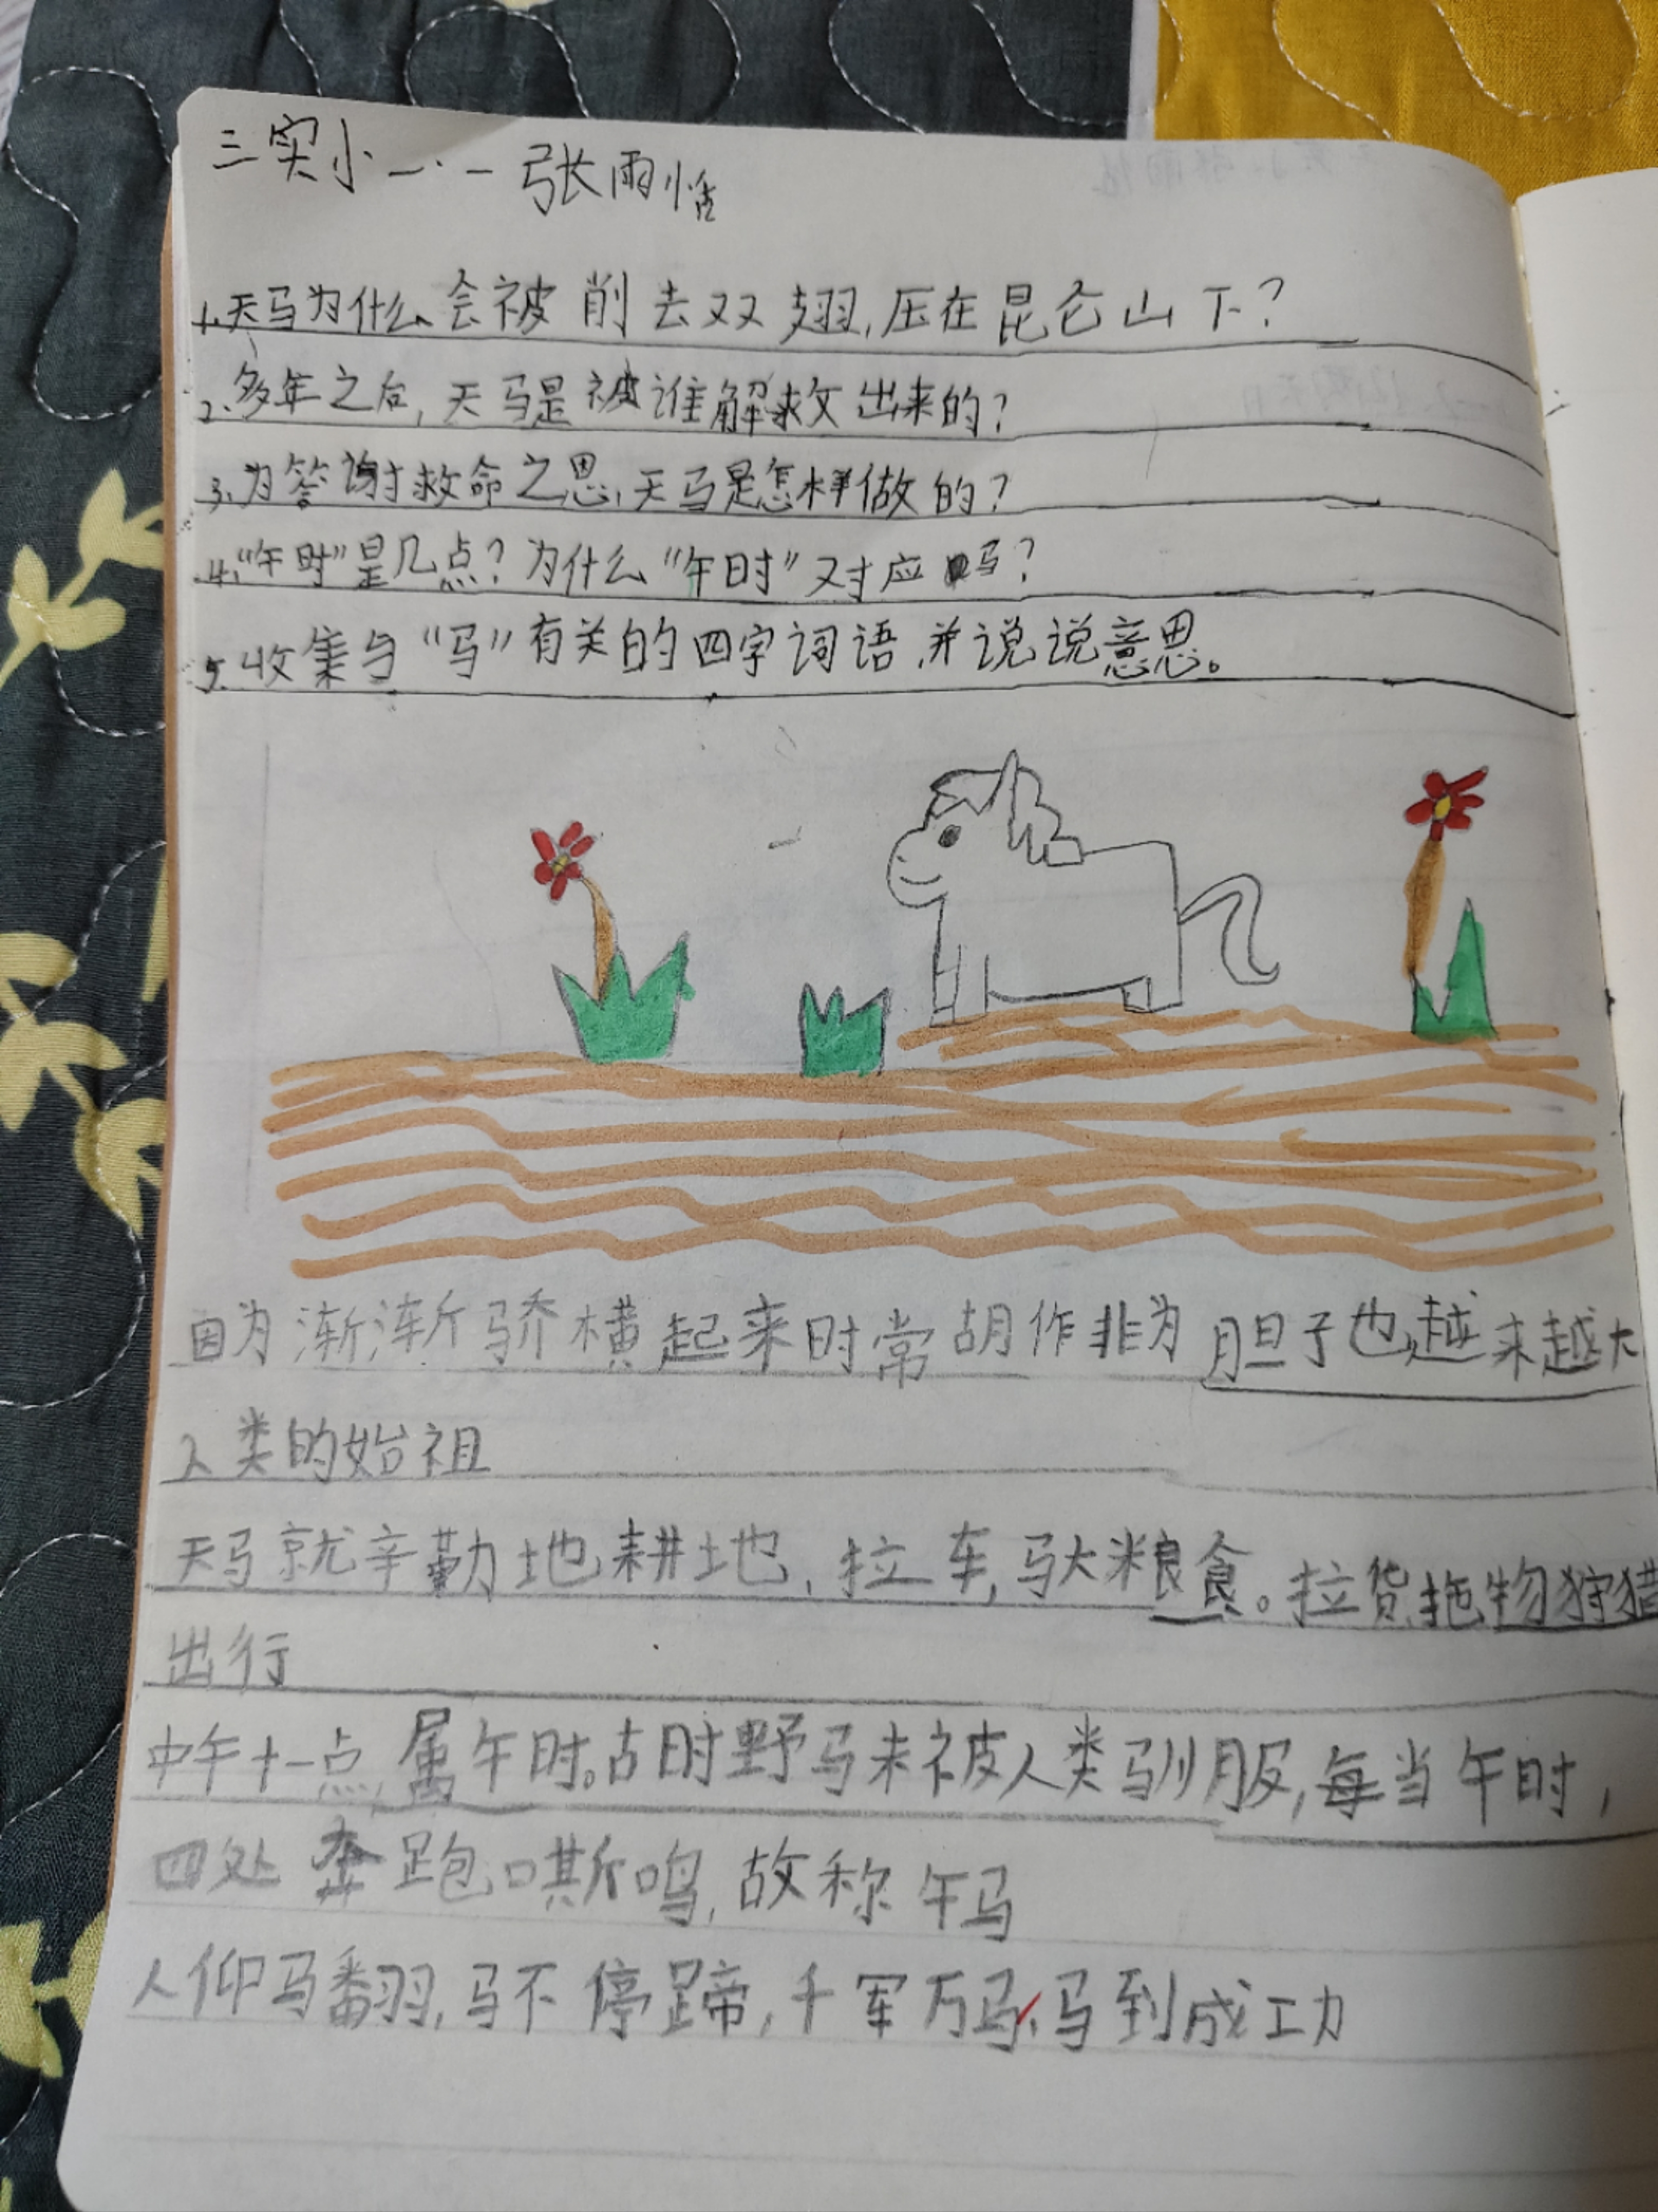 三实小一.一 张雨恬
1.天马为什么会被削去双翅,压在昆仑山下?
2.多年之后,天马是被谁解救出来的?
3.为答谢救命之恩,天马是怎样做的?
4.“午时”是几点?为什么“午时”对应马?
5.收集与“马”有关的四字词语,并说说意思。
因为渐渐骄横起来时常胡作非为 胆子也越来越大
人类的始祖
天马就辛勤地耕地,拉车,驮粮食。拉货拖物狩猎
出行
中午十一点,属午时。古时野马未被人类驯服,每当午时,
四处奔跑嘶鸣,故称午马
人仰马翻,马不停蹄,千军万马,马到成功